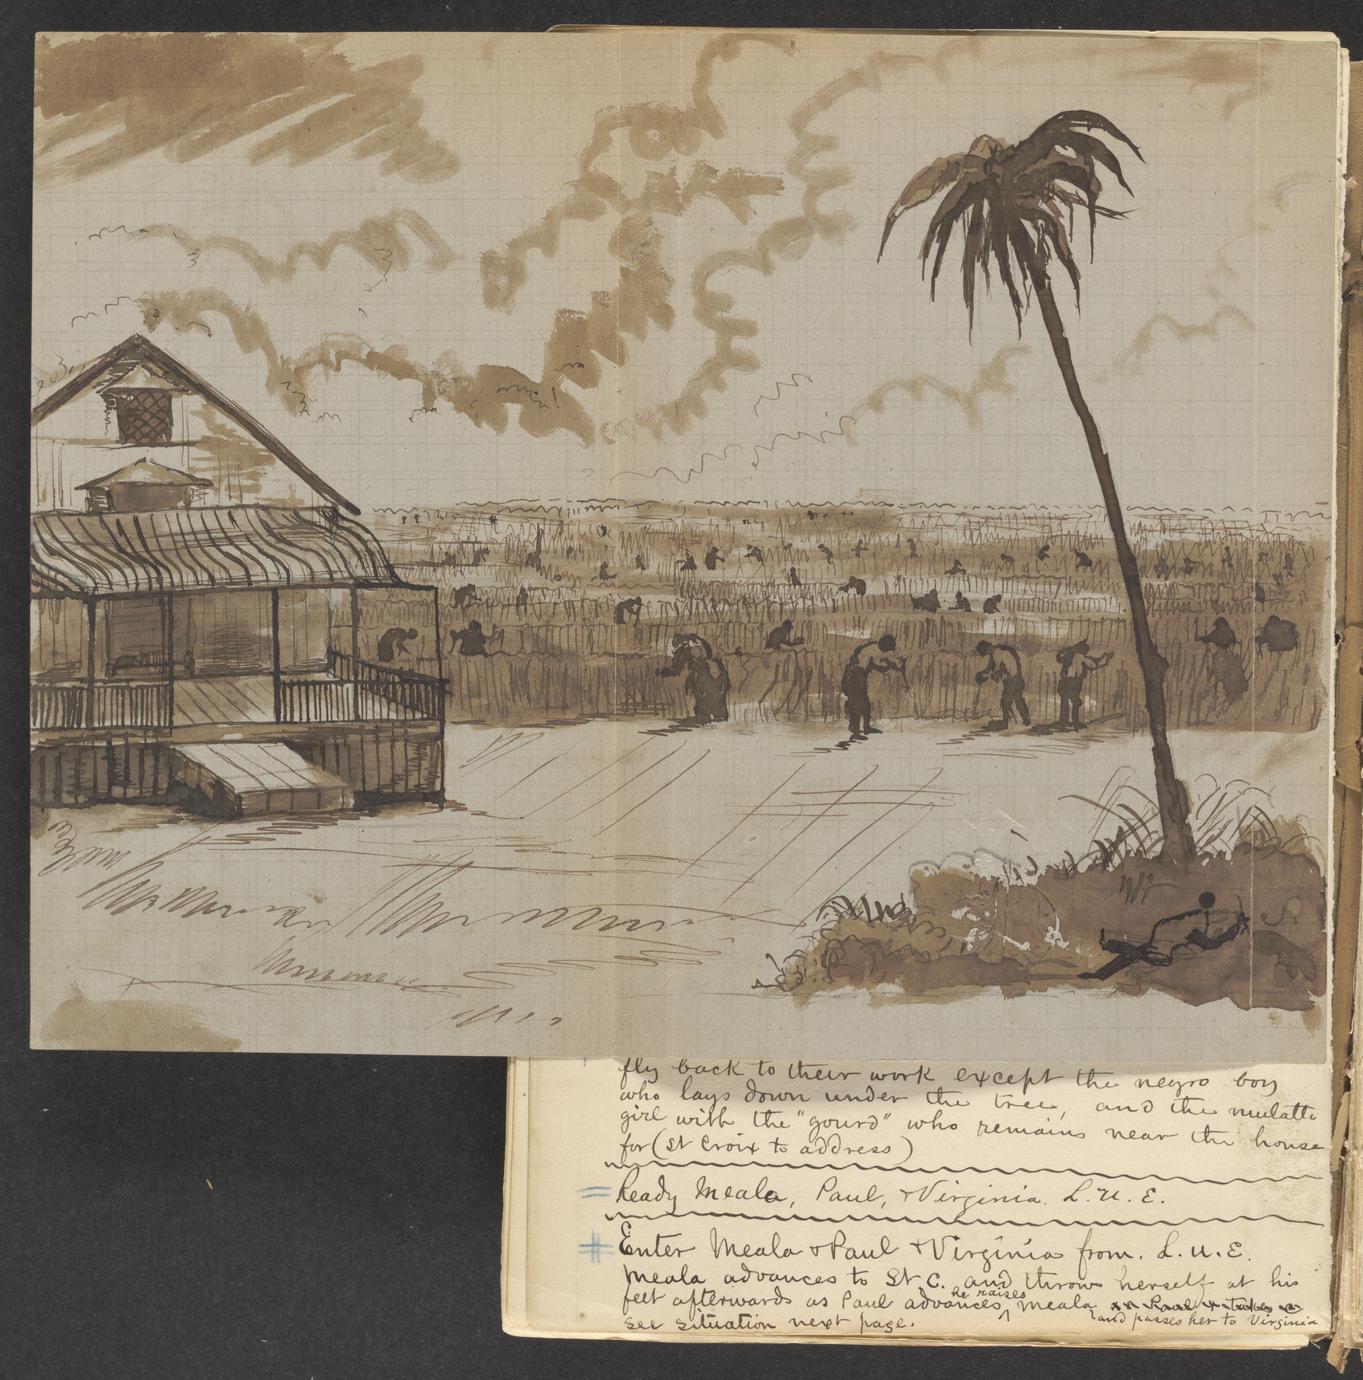 fly back to their work except the negro boy
who lays down under the tree, and the mulatto
girl with the "gourd" who remains near the house
for (St Croix to address)
Ready Meala, Paul, + Virginia. L. U. E.
Enter Meala + Paul + Virginia from. L. U. E.
Meala advances to St. C. and throws herself at his
feet afterwards as Paul advances, he raises Meala and passes her to Virginia
see situation next page.